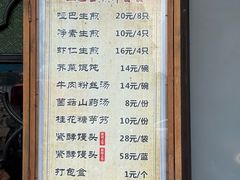 哑巴生煎 20元/8只
净素生煎 10元/4只
虾仁生煎 16元/4只
荠菜馄饨 14元/碗
牛肉粉丝汤 14元/碗
菌菇山药汤 8元/份
桂花糖芋艿 10元/份
紧酵馒头 28元/袋
紧酵馒头 58元/蓝
打包盒 1元/个